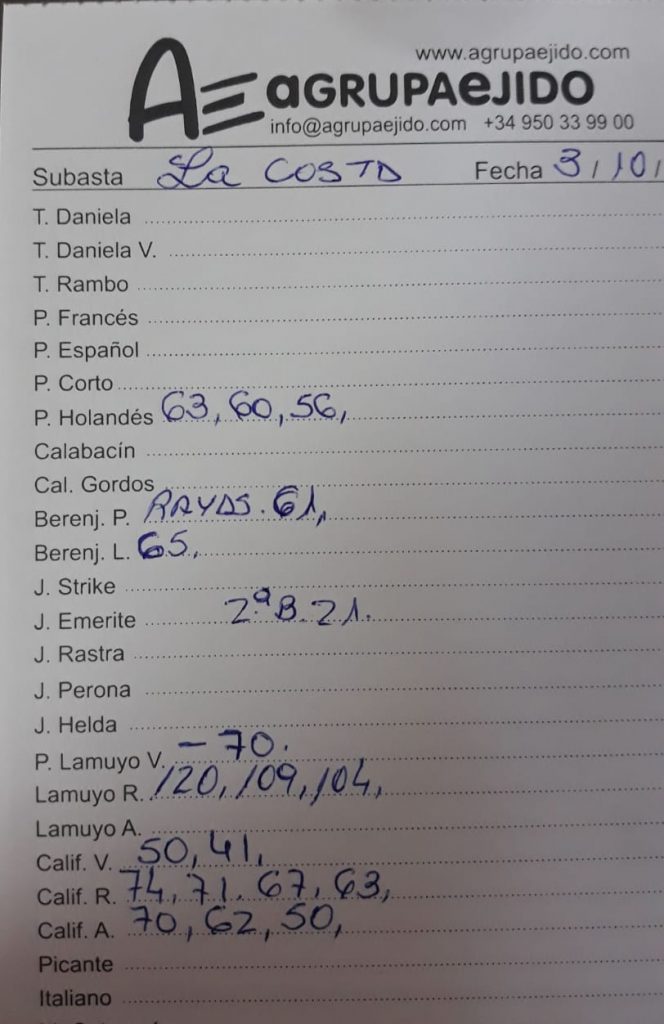 www.agrupaejido.com
AE AGRUPAEJIDO
info@agrupaejido.com +34 950 33 99 00
Subasta La COSTA Fecha 3/10/
T. Daniela
T. Daniela V.
T. Rambo
P. Francés
P. Español
P. Corto
P. Holandés 63, 60, 56,
Calabacín
Cal. Gordos
Berenj. P. RAYAS. 61,
Berenj. L. 65,
J. Strike
J. Emerite 2ªB. 21.
J. Rastra
J. Perona
J. Helda
P. Lamuyo V. - 70.
Lamuyo R. 120, 109, 104,
Lamuyo A.
Calif. V. 50, 41,
Calif. R. 74, 71. 67, 63,
Calif. A. 70, 62, 50,
Picante
Italiano